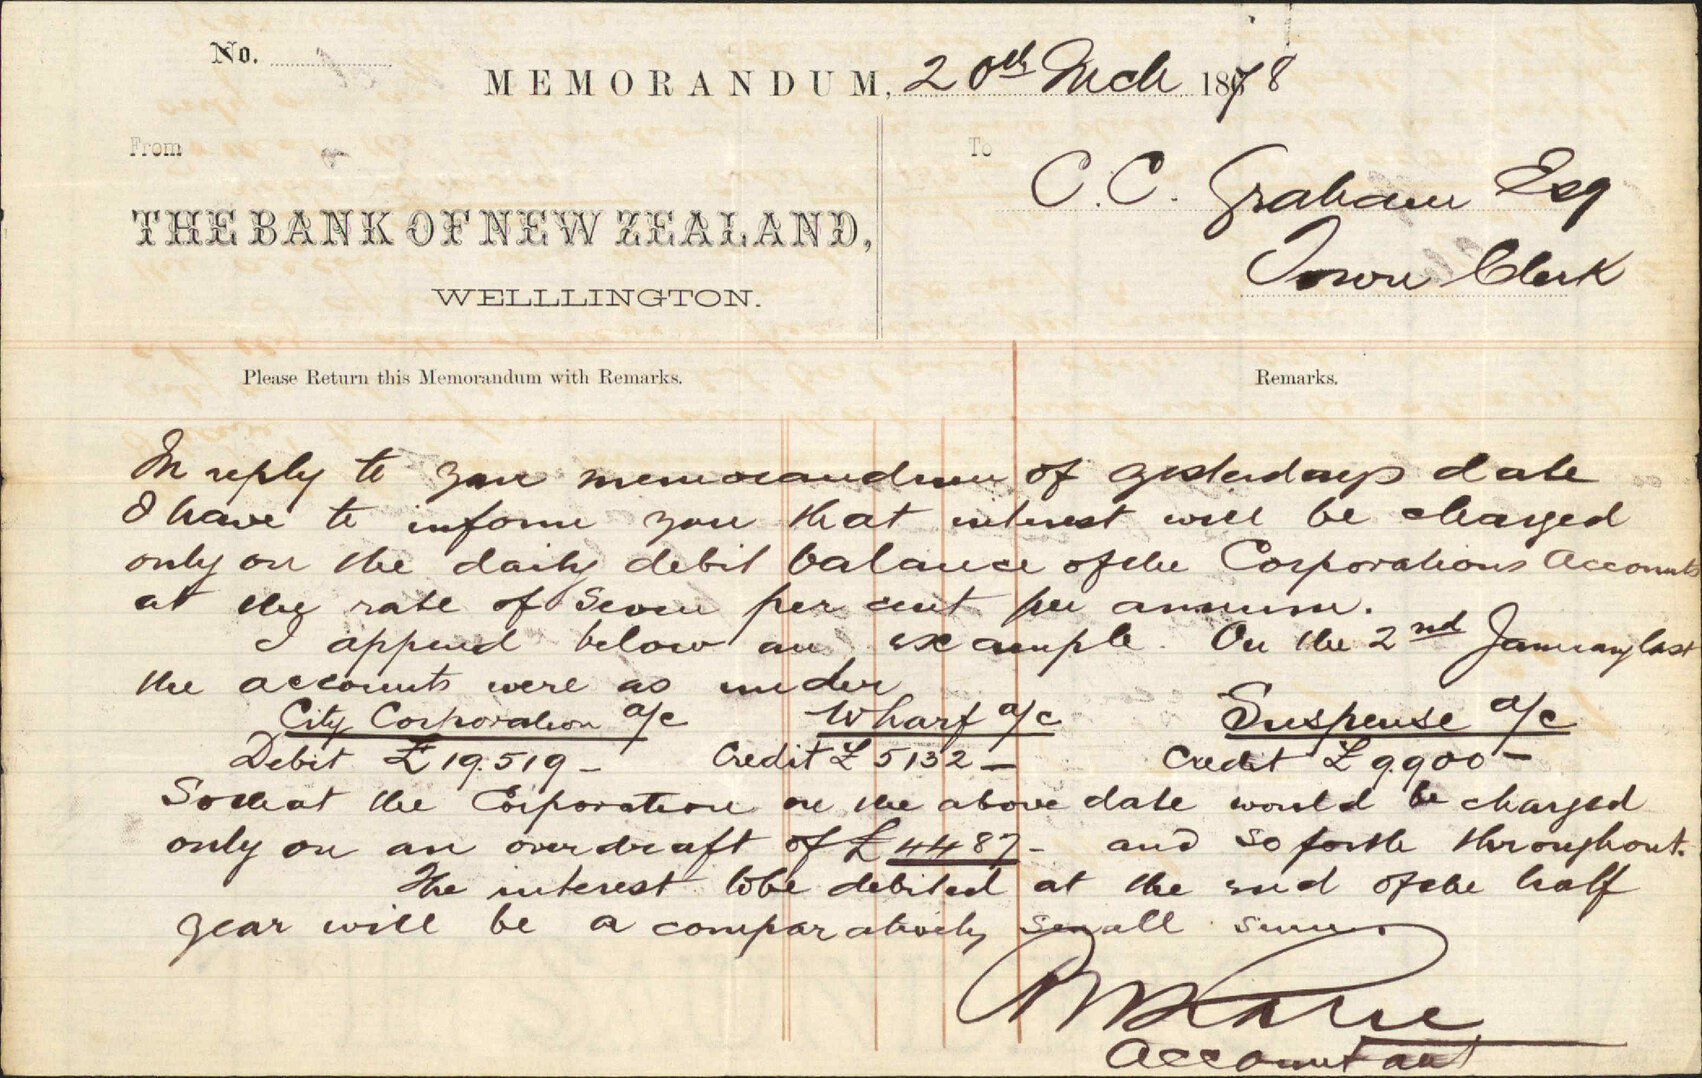 No.
MEMORANDUM, 20th Mch 1878
From
To
C. C. Graham Esq
THE BANK OF NEW ZEALAND,
Town Clerk
WELLLINGTON.
Please Return this Memorandum with Remarks.
Remarks.
In reply to your memorandum of yesterdays date
I have to inform you that interest will be charged
only on the daily debit balance of the Corporations Accounts
at the rate of Seven per cent per annum.
I append below an example. On the 2nd January last
the accounts were as under
City Corporation a/c Wharf a/c Suspense a/c
Debit £19.519 - Credit £5132 - Credit £9.900 -
So that the Corporation on the above date would be charged
only on an overdraft of £4487 - and so forth throughout.
The interest to be debited at the end of the half
year will be a comparatively small sum.
Accountant